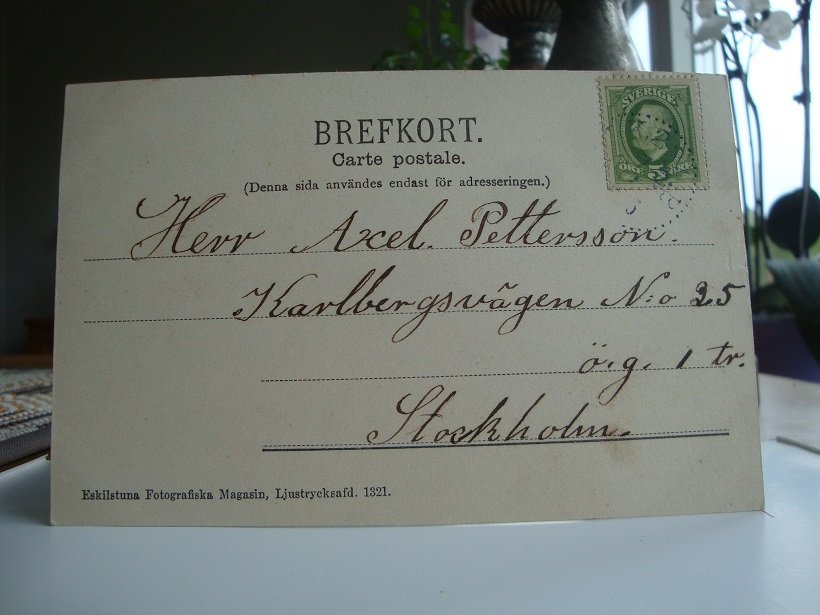 BREFKORT.
Carte postale.
(Denna sida användes endast för adresseringen.)
SVERIGE
ÖRE 5 ÖRE
Herr Axel. Pettersson.
Karlbergsvägen N:o 25
ö.g. 1 tr.
Stockholm.
Eskilstuna Fotografiska Magasin, Ljustrycksafd. 1321.